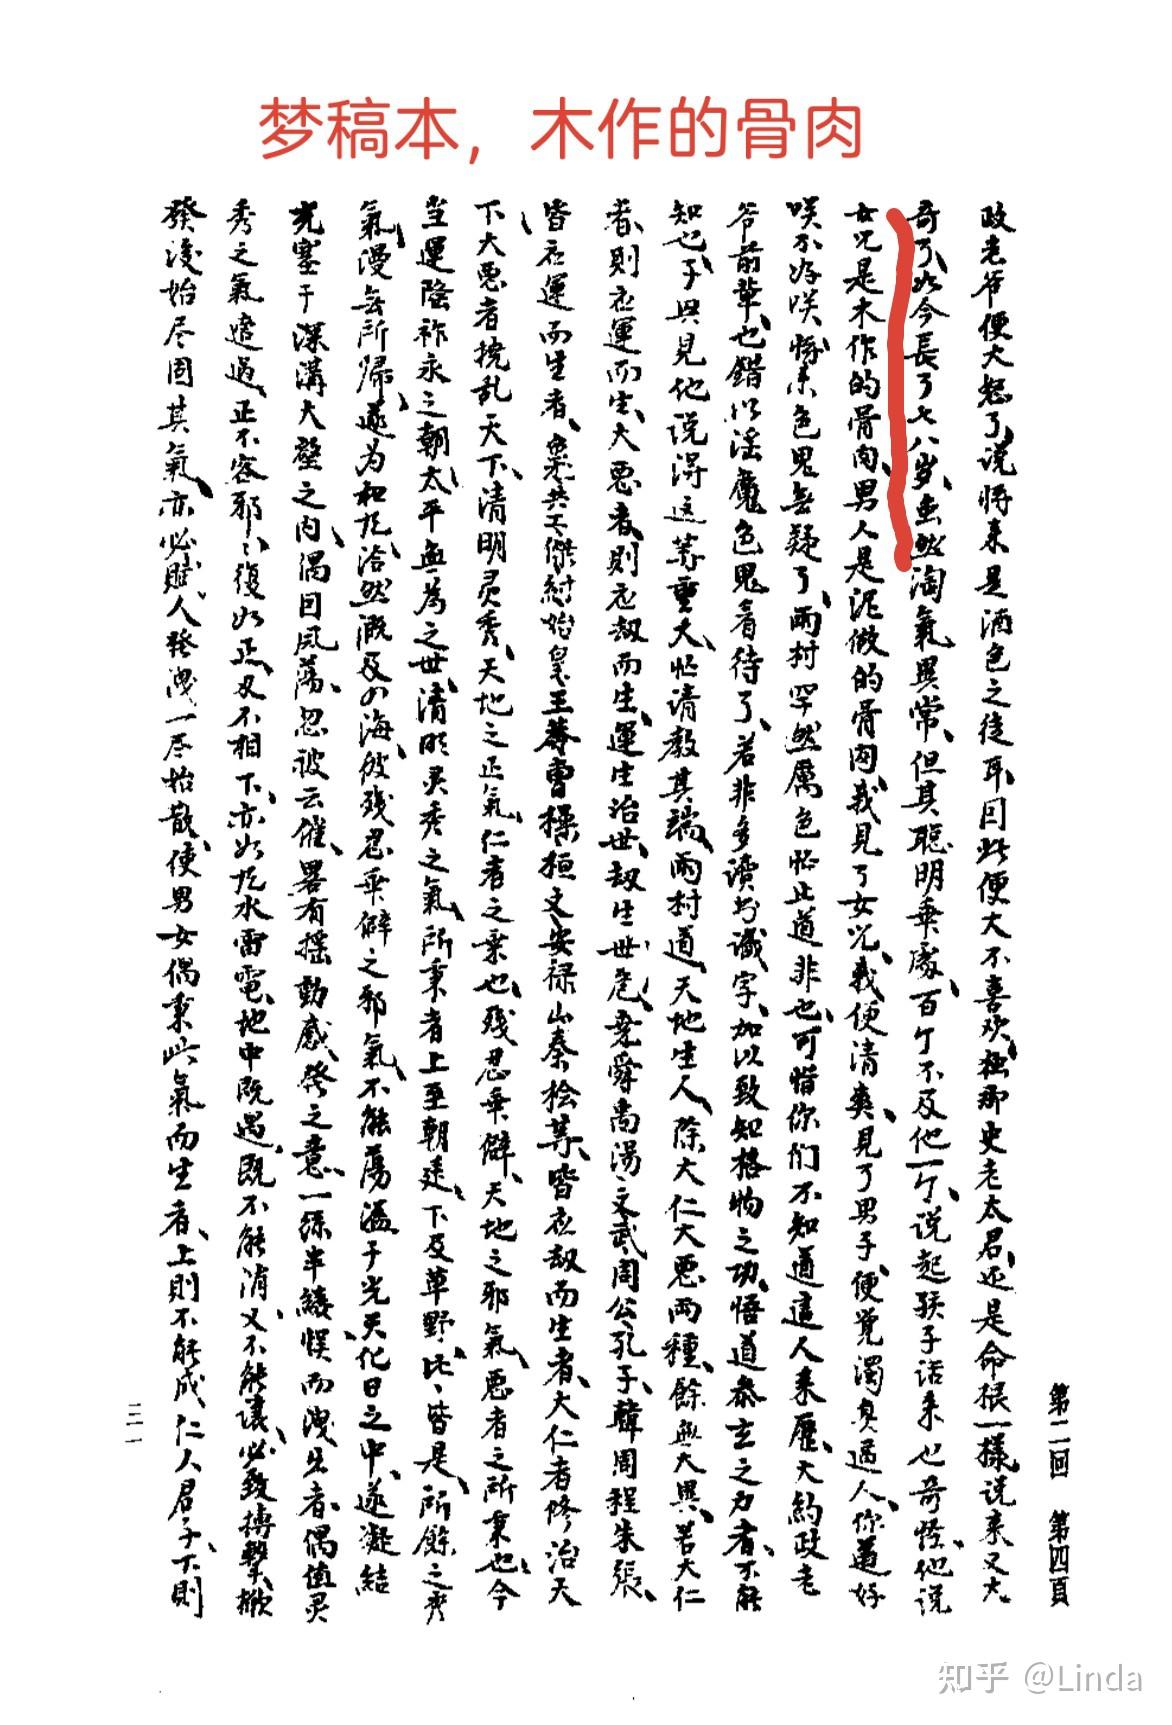 梦稿本，木作的骨肉
第二回 第四頁
政老爷便大怒了、说将来是酒色之徒耳、因此便大不喜欢、独那史老太君、还是命根一樣、说来又大
奇了、如今長了七八岁、虽然淘氣異常、但其聪明乖處、百个不及他一个、说起孩子话来也奇怪、他说
女児是木作的骨肉、男人是泥做的骨肉、我見了女児、我便清爽、見了男子、便觉濁臭逼人、你道好
咲不好咲、将来色鬼無疑了、雨村罕然厲色忙止道非也、可惜你们不知道這人来歷、大約政老
爷前輩、也錯以淫魔色鬼看待了、若非多读书識字、加以致知格物之功、悟道参玄之力者、不能
知也、子興見他说得这等重大、忙请教其端、雨村道、天地生人、除大仁大恶两種、餘無大異、若大仁
者、則应運而生、大恶者、則应劫而生、運生治世、劫生世危、尭舜禹湯、文武周公孔子、韓周程朱張、
皆应運而生者、蚩尤共工傑紂始皇王莽曹操桓文安禄山秦桧等、皆应劫而生者、大仁者修治天
下、大恶者撓乱天下、清明灵秀、天地之正氣、仁者之秉也、残忍乖僻、天地之邪氣、恶者之所秉也、今
当運隆祚永之朝、太平無為之世、清明灵秀之氣、所秉者、上至朝廷、下及草野、比、皆是、所餘之秀
氣、漫無所歸、遂为和风、洽然溉及四海、彼残忍乖僻之邪氣、不能蕩溢于光天化日之中、遂凝結
充塞于深溝大壑之内、偶因风荡、忽被云催、畧有摇動感發之意、一絲半縷悮而洩出者、偶值灵
秀之氣適過、正不容邪、復妒正、又不相下、亦如风水雷電、地中既遇、既不能消、又不能讓、必致搏擊掀
發後始尽、因其氣、亦必賦人、發洩一尽始散、使男女偶秉此氣而生者、上則不能成仁人君子、下則
三一
知乎 @Linda